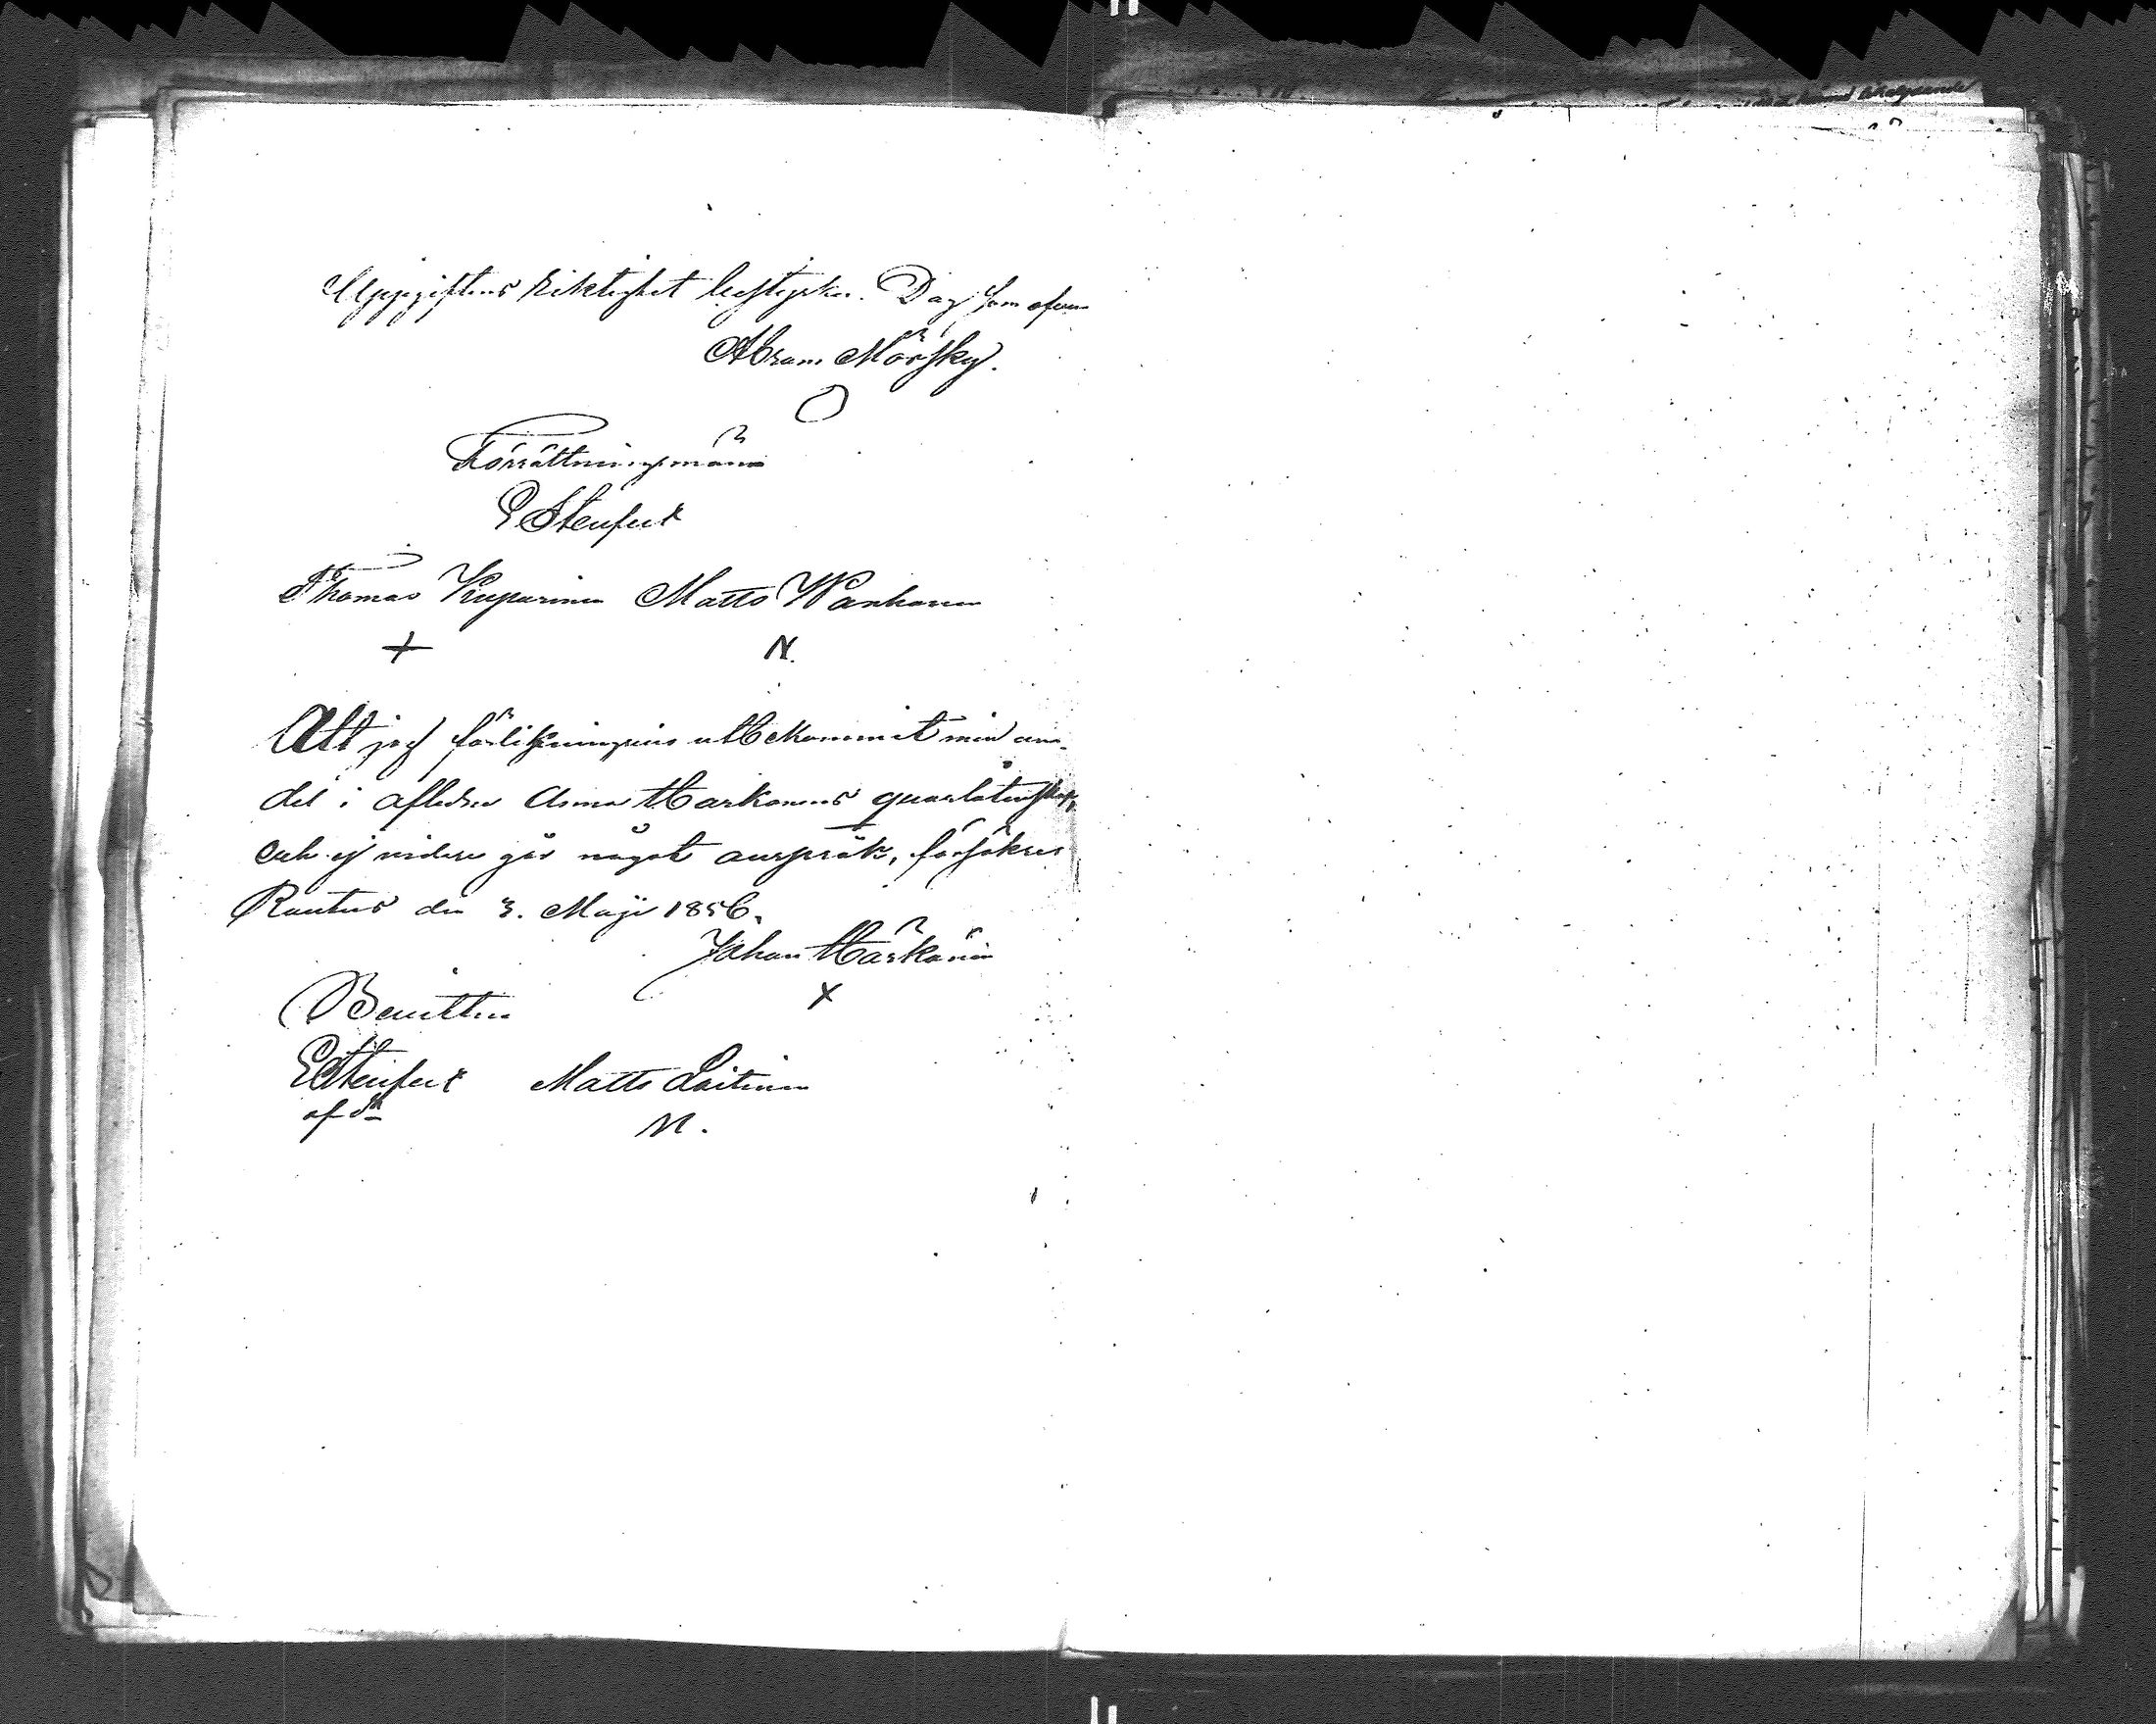 Uppgiftens riktighet bestyrker. Dag som ofvan
Abram Mörsky.
O
Förrättningsmän
E Stenfert
Thomas Kuparinen Matts Wanhanen
+ N.
Att jag förlikningsvis utbekommit min an-
del i aflidne Anna Härkönens quarlåtenskap,
och ej vidare gör något anspråk, försäkras
Rautus den 3. Maji 1856.
Johan Härkönin
X
Bevittna
E Stenfert Matts Loitinen
M.